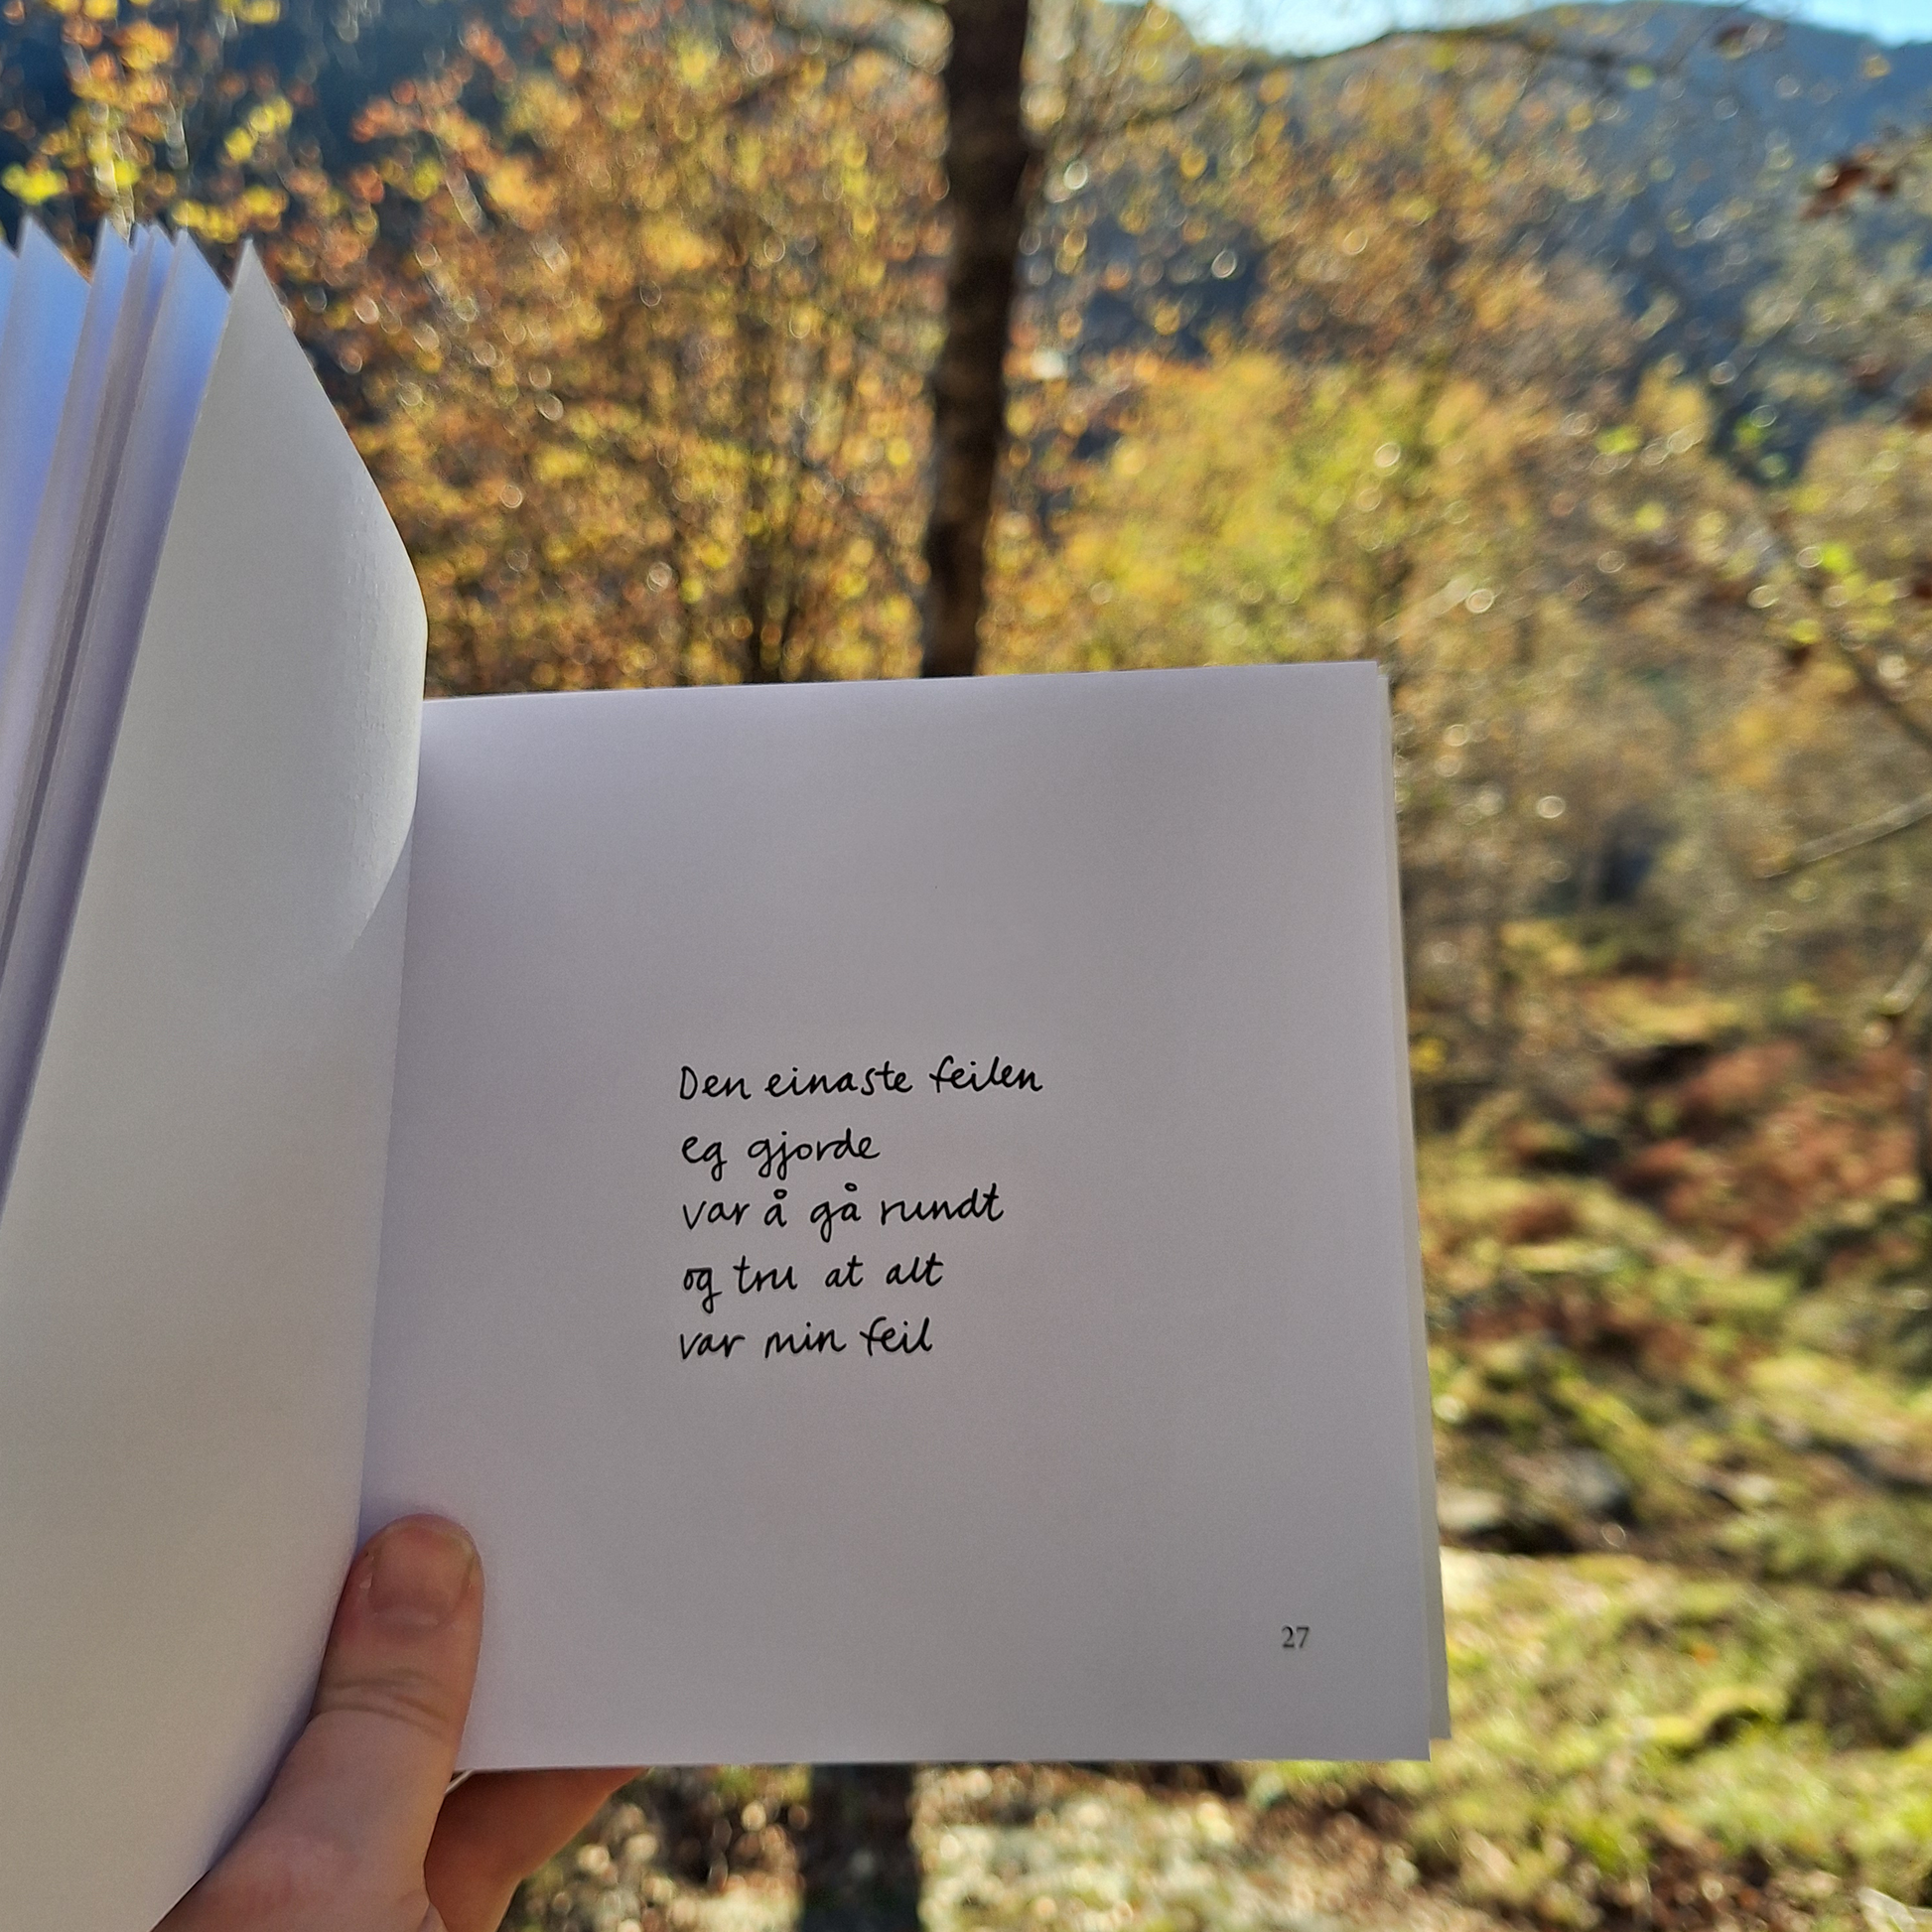 Den einaste feilen
eg gjorde
var å gå rundt
og tru at alt
var min feil
27